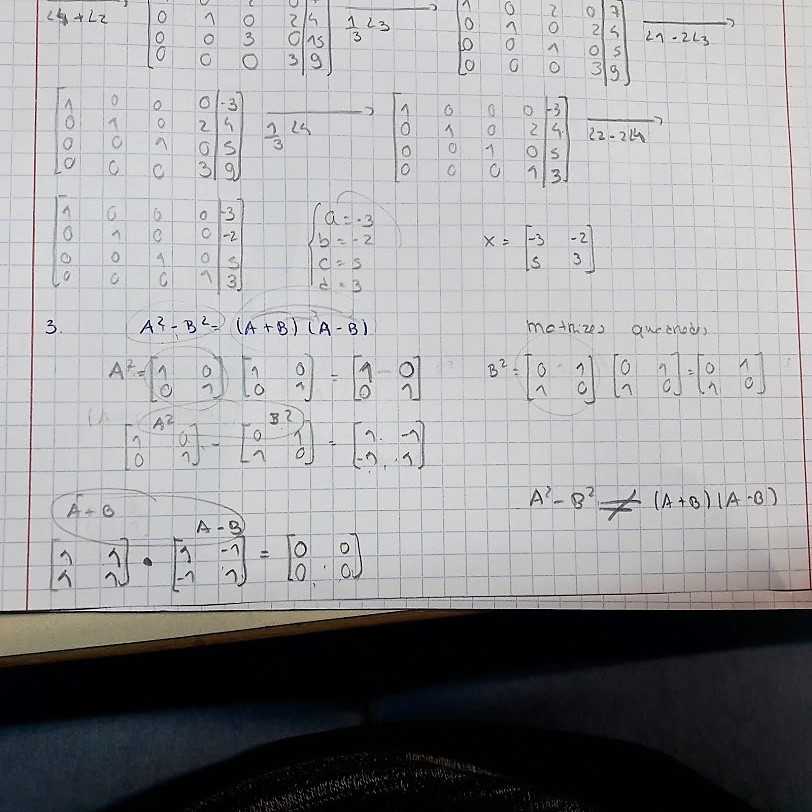 L4 + L2
0 1 0 2 | 4
0 0 3 0 | 15
0 0 0 3 | 9
1/3 L3
1 0 2 0 | 7
0 1 0 2 | 4
0 0 1 0 | 5
0 0 0 3 | 9
L1 - 2L3
1 0 0 0 | -3
0 1 0 2 | 4
0 0 1 0 | 5
0 0 0 3 | 9
1/3 L4
1 0 0 0 | -3
0 1 0 2 | 4
0 0 1 0 | 5
0 0 0 1 | 3
L2 - 2L4
1 0 0 0 | -3
0 1 0 0 | -2
0 0 1 0 | 5
0 0 0 1 | 3
a = -3
b = -2
c = 5
d = 3
X = [-3 -2
5 3]
3. A² - B² = (A + B) (A - B) matrizes quadradas
A² = [1 0 [1 0 = [1 0 B² = [0 1 [0 1 = [0 1
0 1] 0 1] 0 1] 1 0] 1 0] 1 0]
A² B²
[1 0 - [0 1 = [1 -1
0 1] 1 0] -1 1]
A² - B² ≠ (A + B) (A - B)
A + B
A - B
[1 1 • [1 -1 = [0 0
1 1] -1 1] 0 0]